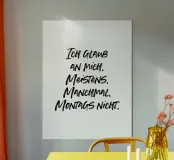 ICH GLAUB
AN MICH.
MEISTENS.
MANCHMAL.
MONTAGS NICHT.